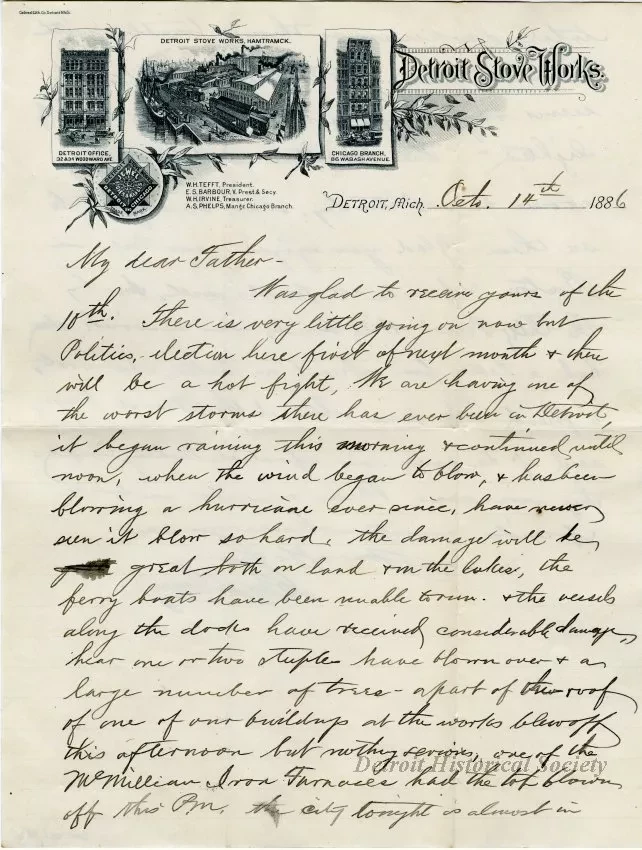 Calvert Lith. Co. Detroit Mich.
DETROIT STOVE WORKS, HAMTRAMCK.
Detroit Stove Works.
DETROIT OFFICE,
32 & 34 WOODWARD AVE
CHICAGO BRANCH,
86 WABASH AVENUE.
JEWEL
TRADE MARK
W.H. TEFFT, President.
E.S. BARBOUR, V. Prest & Secy.
W.H. IRVINE, Treasurer.
A.S. PHELPS, Mangr. Chicago Branch.
DETROIT, Mich. Octo. 14th 1886
My dear Father -
Was glad to receive yours of the
10th. There is very little going on now but
Politics, - election here first of next month & there
will be a hot fight, We are having one of
the worst storms there has ever been in Detroit,
it began raining this morning & continued until
noon, when the wind began to blow, & has been
blowing a hurricane ever since, have never
seen it blow so hard, the damage will be
great both on land & on the lakes, the
ferry boats have been unable to run. & the vessels
along the docks have received considerable damage,
hear one or two steeples have blown over & a
large number of trees - a part of the roof
of one of our buildings at the works blew off
this afternoon but nothing serious, one of the
McMillian Iron Furnaces had the top blown
off this P.m. the city tonight is almost in
Detroit Historical Society